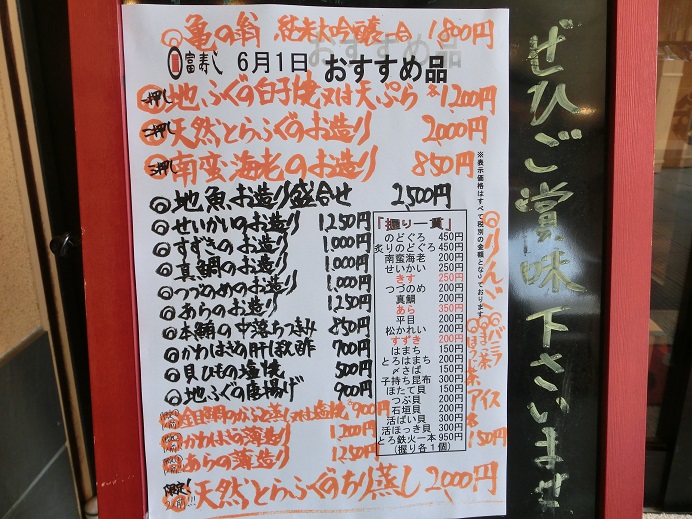 亀の翁 純米大吟醸一合 1800円
富寿し 6月1日 おすすめ品
一押し 地ふぐの白子焼又は天ぷら 各1,200円
二押し 天然とらふぐのお造り 2,000円
三押し 南蛮海老のお造り 850円
◎地魚お造り盛合せ 2,500円
◎せいかいのお造り 1,250円
◎すずきのお造り 1,000円
◎真鯛のお造り 1,000円
◎つづのめのお造り 1,000円
◎あらのお造り 1,250円
◎本鮪の中落ちつまみ 850円
◎かわはぎの肝ぽん酢 700円
◎貝ひもの塩焼 500円
◎地ふぐの唐揚げ 900円
金目鯛のかぶと蒸し又は塩焼 900円
◎かわはぎの薄造り 1,200円
◎あらの薄造り 1250円
限定!
天然とらふぐのちり蒸し 2,000円
「握り一貫」
のどぐろ 450円
炙りのどぐろ 450円
南蛮海老 200円
せいかい 250円
きす 250円
つづのめ 200円
真鯛 200円
あら 350円
平目 200円
松かれい 200円
すずき 200円
はまち 150円
とろはまち 150円
〆さば 150円
子持ち昆布 300円
ほたて貝 150円
つぶ貝 200円
石垣貝 200円
活ばい貝 300円
活ほっき貝 300円
とろ鉄火一本 950円
(握り各1個)
※表示価格はすべて税別の金額となっております
◎りんご
◎バニラ
◎抹茶
◎ほうじ茶
アイス
各150円
ぜひご賞味下さいませ